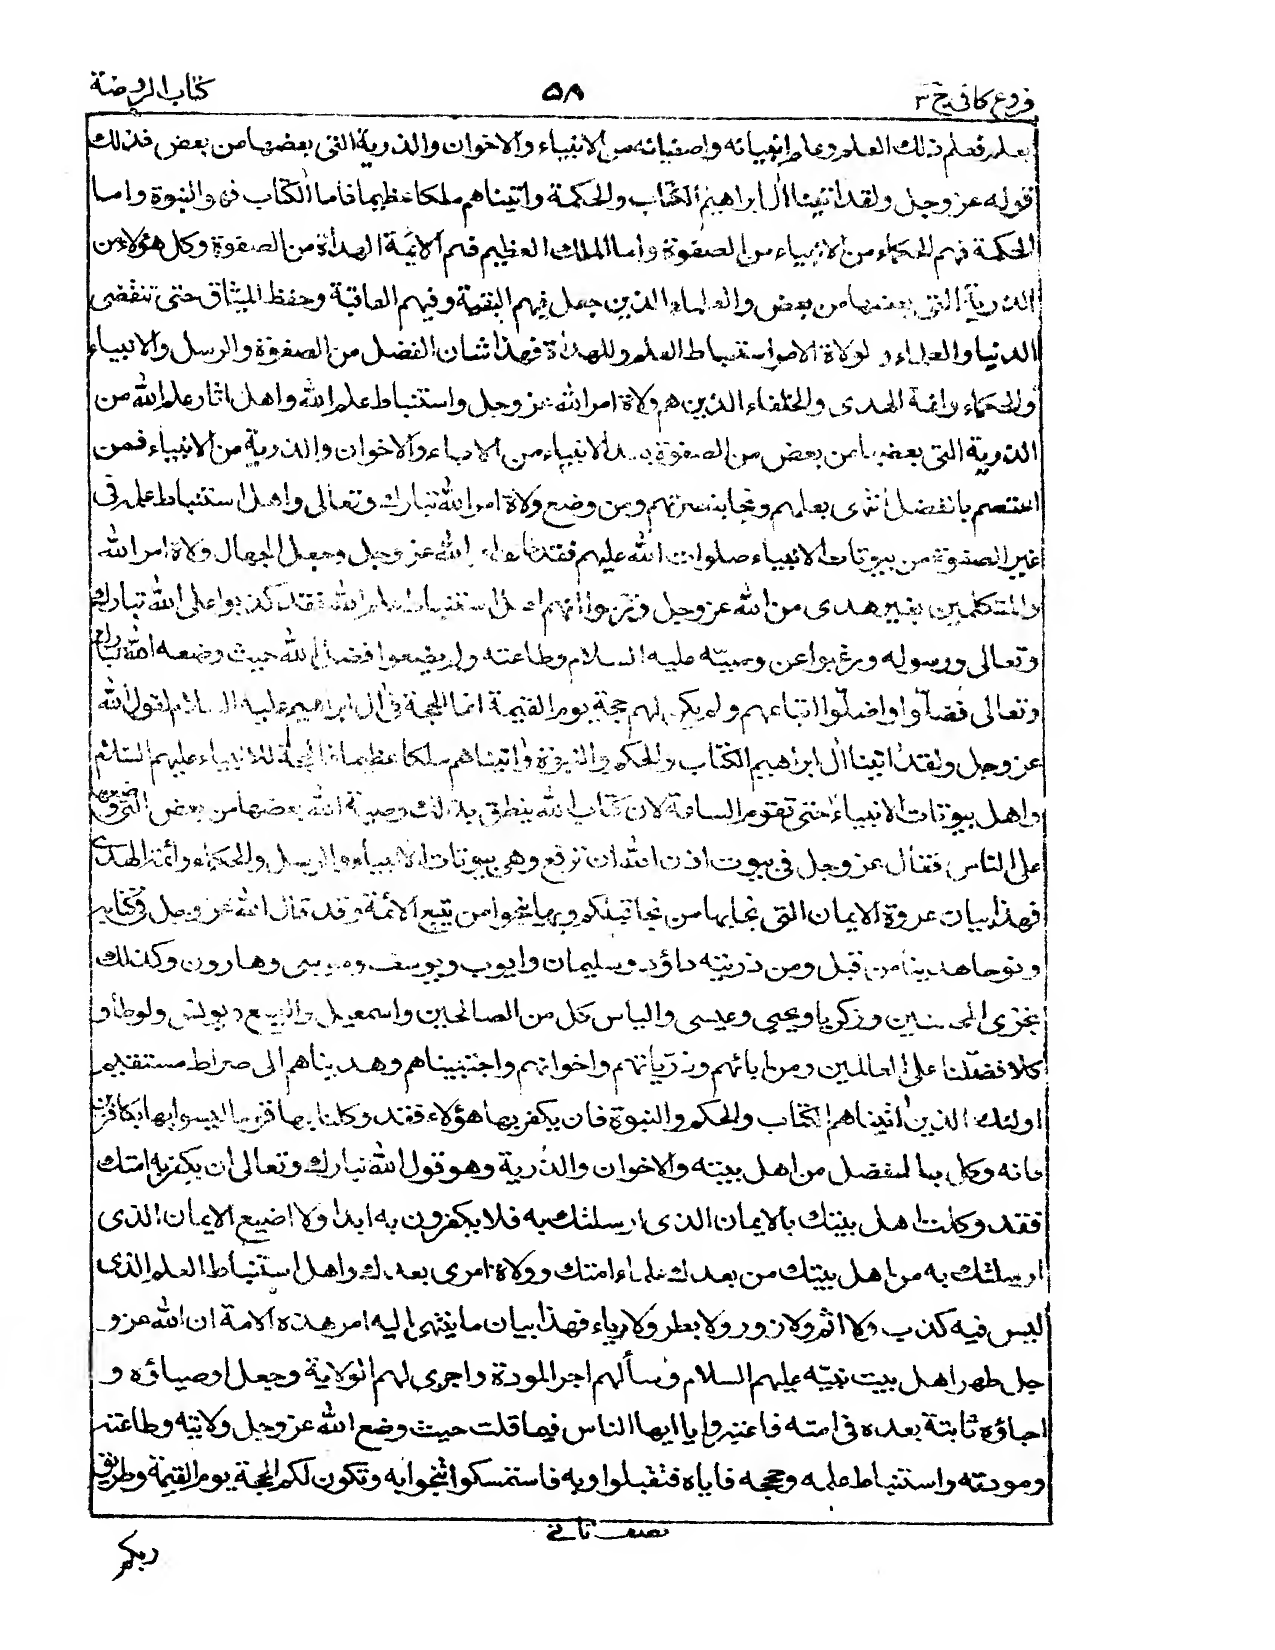 فروع كافي ج ٣
٥٨
كتاب الروضة
يعلم فعلم ذلك العلم وعلم انبيائه واصفيائه من الانبياء والاخوان والذرية التي بعضها من بعض فذلك
قوله عز وجل ولقد اتينا ال ابراهيم الكتاب والحكمة واتيناهم ملكا عظيما فاما الكتاب فهو النبوة واما
الحكمة فهم الحكماء من الانبياء من الصفوة واما الملك العظيم فهم الائمة الهداة من الصفوة وكل هؤلاء من
الذرية التي بعضها من بعض والعلماء الذين جعل فيهم البقية وفيهم العاقبة وحفظ الميثاق حتى تنقضي
الدنيا والعلماء و لولاة الامر استنباط العلم وللهداة فهذا شان الفضل من الصفوة والرسل والانبياء
والحكماء وائمة الهدى والخلفاء الذين هم ولاة امر الله عز وجل واستنباط علم الله واهل اثار علم الله من
الذرية التي بعضها من بعض من الصفوة بعد الانبياء من الاباء والاخوان والذرية من الانبياء فمن
اعتصم بالفضل انتهى بعلمهم ونجا بنصرتهم ومن وضع ولاة امر الله تبارك وتعالى واهل استنباط علمه في
غير الصفوة من بيوتات الانبياء صلوات الله عليهم فقد خالف امر الله عز وجل وجعل الجهال ولاة امر الله
والمتكلمين بغير هدى من الله عز وجل وزعموا انهم اهل استنباط علم الله فقد كذبوا على الله تبارك
وتعالى ورسوله ورغبوا عن وصيّه عليه السلام وطاعته ولم يضعوا فضل الله حيث وضعه الله تبارك
وتعالى فضلّوا واضلّوا اتباعهم ولم يكن لهم حجة يوم القيمة انما الحجة في ال ابراهيم عليه السلام لقول الله
عز وجل ولقد اتينا ال ابراهيم الكتاب والحكم والنبوة واتيناهم ملكا عظيما فالحجة للانبياء عليهم السلام
واهل بيوتات الانبياء حتى تقوم الساعة لان كتاب الله ينطق بذلك وصية الله بعضها من بعض التي وضعها
على الناس فقال عز وجل في بيوت اذن الله ان ترفع وهي بيوتات الانبياء والرسل والحكماء وائمة الهدى
فهذا بيان عروة الايمان التي نجا بها من نجا قبلكم وبها ينجو من يتبع الائمة وقد قال الله عز وجل في كتابه
ونوحا هدينا من قبل ومن ذريته داؤد وسليمان وايوب ويوسف وموسى وهارون وكذلك
نجزى المحسنين وزكريا ويحيى وعيسى والياس كل من الصالحين واسمعيل واليسع ويونس ولوطا و
كلا فضّلنا على العالمين ومن ابائهم وذرّياتهم واخوانهم واجتبيناهم وهديناهم الى صراط مستقيم
اولئك الذين اتيناهم الكتاب والحكم والنبوة فان يكفر بها هؤلاء فقد وكلنا بها قوما ليسوا بها بكافرين
فانه وكل بالفضل من اهل بيته والاخوان والذرية وهو قول الله تبارك وتعالى ان يكفر به امتك
فقد وكلت اهل بيتك بالايمان الذى ارسلتك به فلا يكفرون به ابدا ولا اضيع الايمان الذى
ارسلتك به من اهل بيتك من بعدك علماء امتك وولاة امرى بعدك واهل استنباط العلم الذى
ليس فيه كذب ولا اثم ولا زور ولا بطر ولا رياء فهذا بيان ما ينتهى اليه امر هذه الامة ان الله عز و
جل طهر اهل بيت نبيّه عليهم السلام وسألهم اجر المودة واجرى لهم الولاية وجعل اوصياؤه و
احباؤه ثابتة بعده في امته فاعتبروا يا ايها الناس فيما قلت حيث وضع الله عز وجل ولايته وطاعته
ومودته واستنباط علمه وحججه فاياه فتقبلوا وبه فاستمسكوا تنجوا به وتكون لكم الحجة يوم القيمة وطريق
نصف ثاني
ربكم